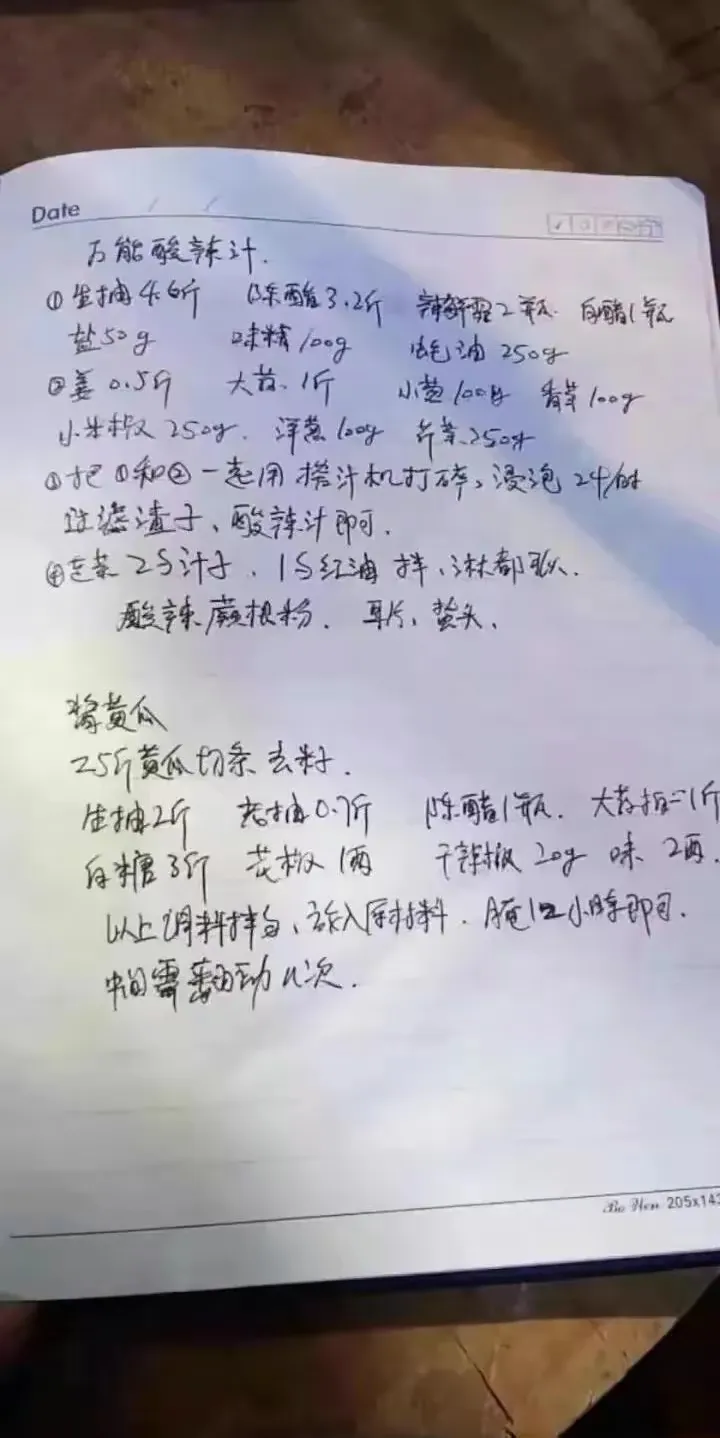 Date / /
万能酸辣汁.
①生抽4.6斤 陈醋3.2斤 辣鲜露2瓶. 白醋1瓶
盐50g 味精100g 蚝油250g
②姜0.5斤 大蒜.1斤 小葱100g 香菜100g
小米椒250g. 洋葱100g 芹菜250g
③把①和②一起用榨汁机打碎,浸泡24小时
过滤渣子、酸辣汁即可.
④走菜25汁子、15红油拌、淋都可以.
酸辣蕨根粉. 耳片、蜇头、
酱黄瓜
25斤黄瓜切条去籽.
生抽2斤 老抽0.7斤 陈醋1瓶. 大蒜 1斤
白糖3斤 花椒1两 干辣椒20g 味 2两.
以上调料拌匀、放入原材料. 腌12小时即可.
中间需翻动几次.
Bo Wen 205x143